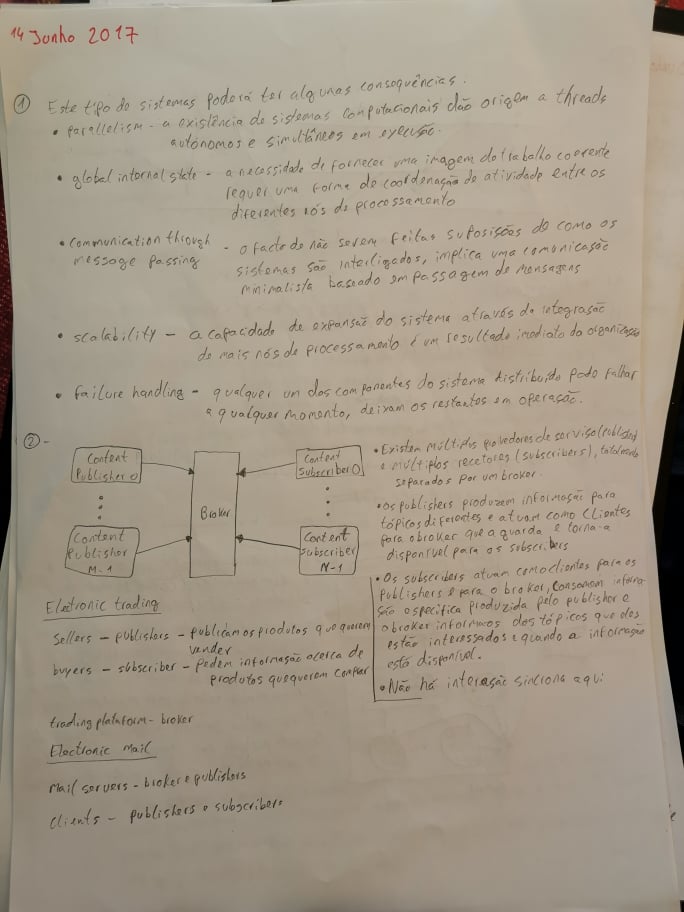 14 Junho 2017
① Este tipo de sistemas poderá ter algumas consequências.
• parallelism - a existência de sistemas computacionais dão origem a threads
autónomos e simultâneos em execução.
• global internal state - a necessidade de fornecer uma imagem do trabalho coerente
requer uma forma de coordenação de atividade entre os
diferentes nós de processamento
• communication through - o facto de não serem feitas suposições de como os
message passing sistemas são interligados, implica uma comunicação
minimalista baseado em passagem de mensagens
• scalability - a capacidade de expansão do sistema através da integração
de mais nós de processamento é um resultado imediato da organização
• failure handling - qualquer un dos componentes do sistema distribuído pode falhar
a qualquer momento, deixam os restantes em operação.
② -
Content
Publisher 0
Content
Publisher
M-1
Broker
Content
Subscriber 0
Content
Subscriber
N-1
• Existem múltiplos provedores de serviso (published
e múltiplos recetores (subscribers), totalmente
separados por um broker.
• Os publishers produzem informação para
tópicos diferentes e atuam como clientes
para o broker que a guarda e torna-a
disponível para os subscribers
• Os subscribers atuam como clientes para os
publishers e para o broker, consomem informa-
ção especifica produzida pelo publisher e
o broker informa-os dos tópicos que eles
estão interessados e quando a informação
está disponível.
• Não há interação síncrona aqui
Electronic trading
Sellers - publishers - publicam os produtos que querem
vender
buyers - subscriber - pedem informação acerca de
produtos que querem comprar
trading plataform - broker
Electronic Mail
Mail servers - broker e publishers
Clients - publishers e subscribers